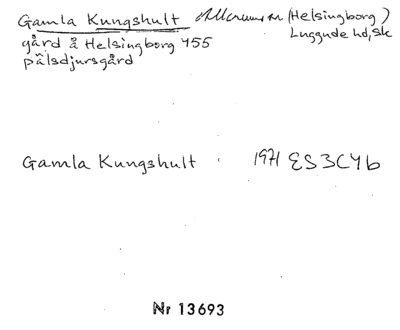 Gamla Kungshult Allerums sn (Helsingborg)
Luggude hd, Sk
gård å Helsingborg 455
pälsdjursgård
Gamla Kungshult 1971 ES3C4b
Nr 13693